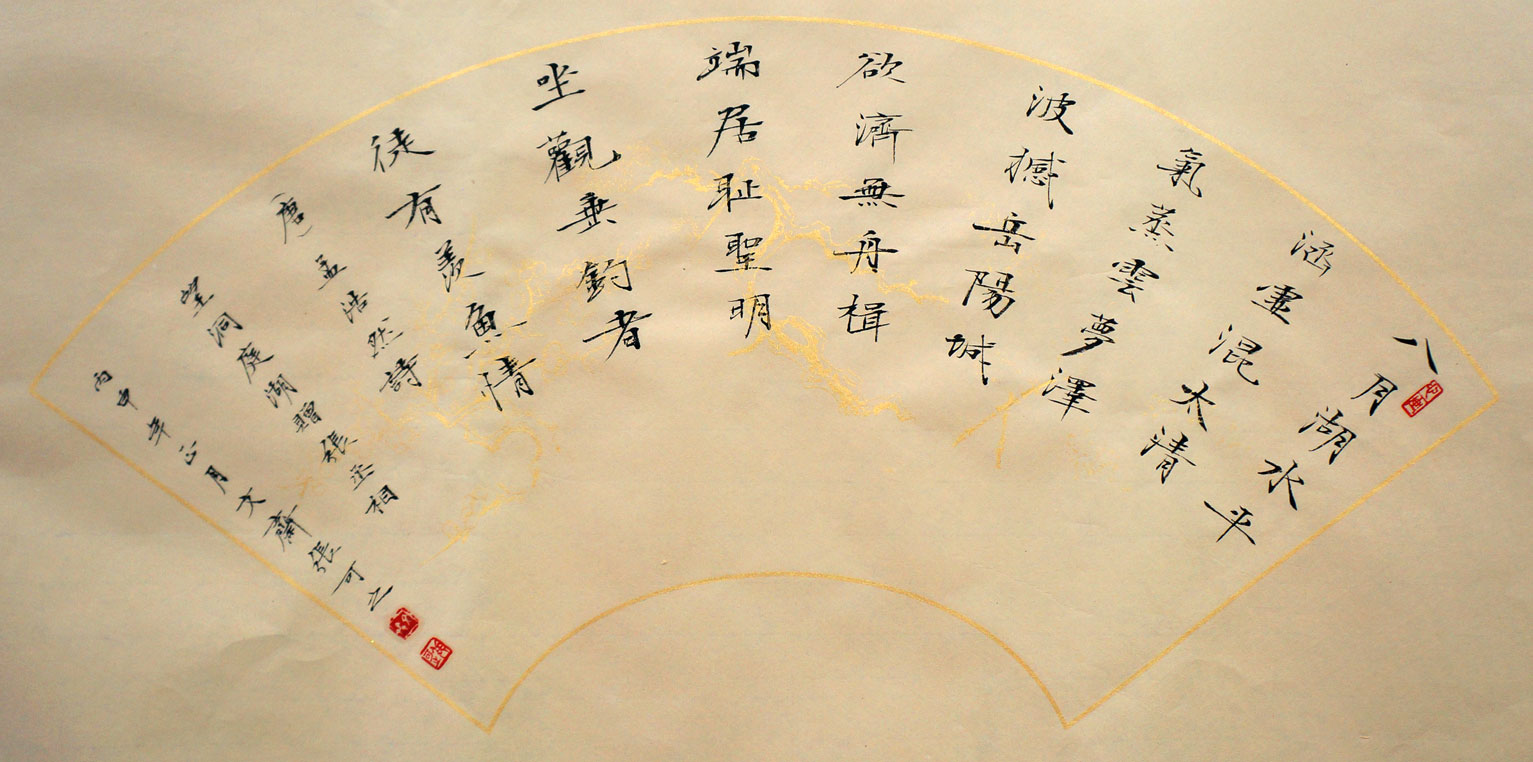 八月湖水平
涵虛混太清
氣蒸雲夢澤
波撼岳陽城
欲濟無舟楫
端居耻聖明
坐觀垂釣者
徒有羨魚情
（唐）孟浩然詩
望洞庭湖贈張丞相
丙申年正月文齋張可之